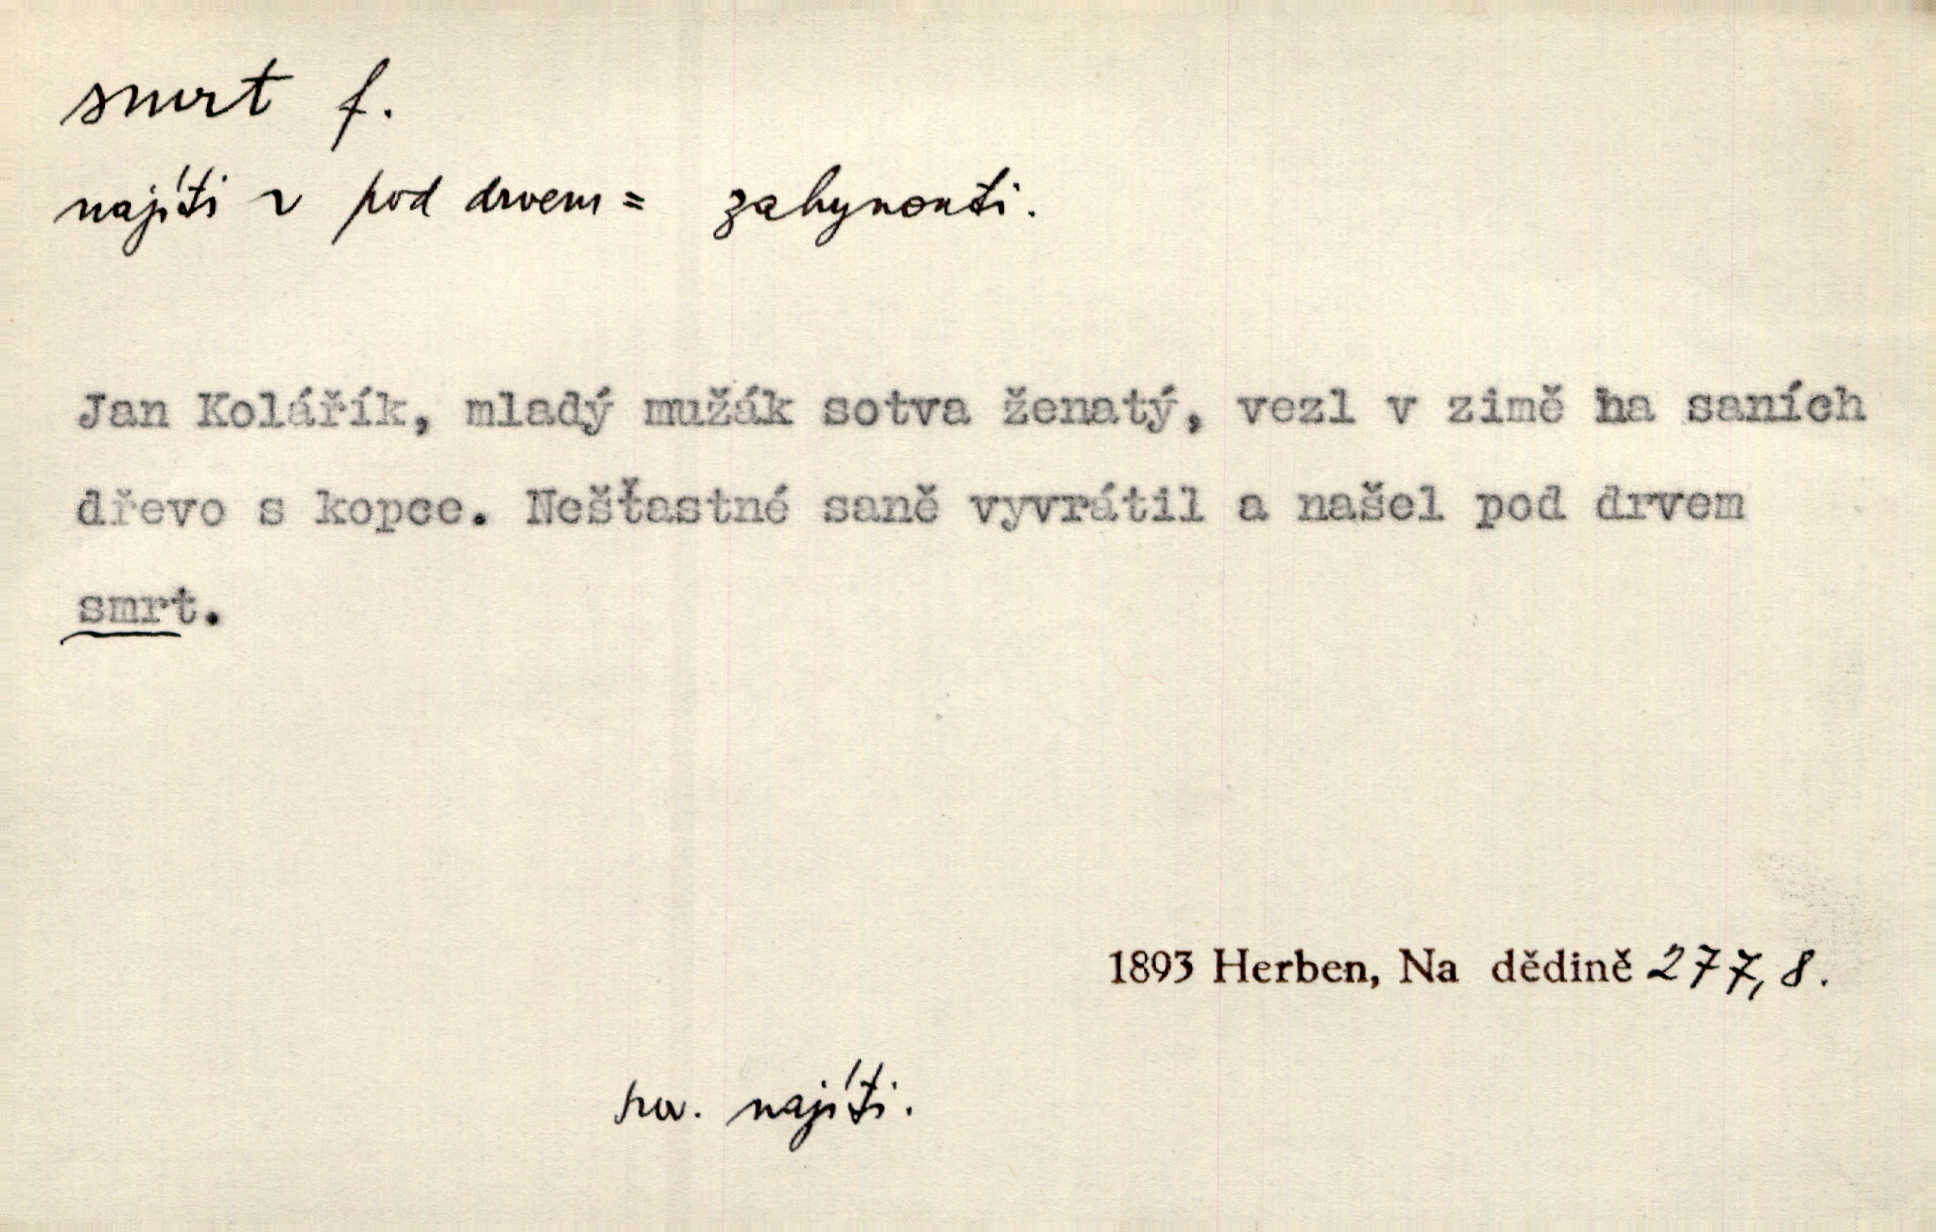 smrt f.
najíti ~ pod drvem = zahynouti.
Jan Kolářík, mladý mužák sotva ženatý, vezl v zimě na saních
dřevo s kopce. Nešťastné saně vyvrátil a našel pod drvem
smrt.
1893 Herben, Na dědině 277, 8.
najíti.